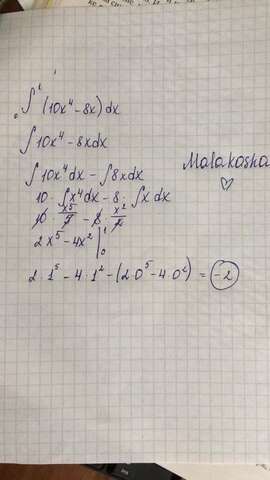 ₀∫¹ (10x⁴ - 8x) dx
∫ 10x⁴ - 8x dx
∫ 10x⁴ dx - ∫ 8x dx
10 · ∫ x⁴ dx - 8 · ∫ x dx
10 · x⁵/5 - 8 · x²/2
2x⁵ - 4x² |₀¹
2 · 1⁵ - 4 · 1² - (2 · 0⁵ - 4 · 0²) = -2
Malakosha
♡